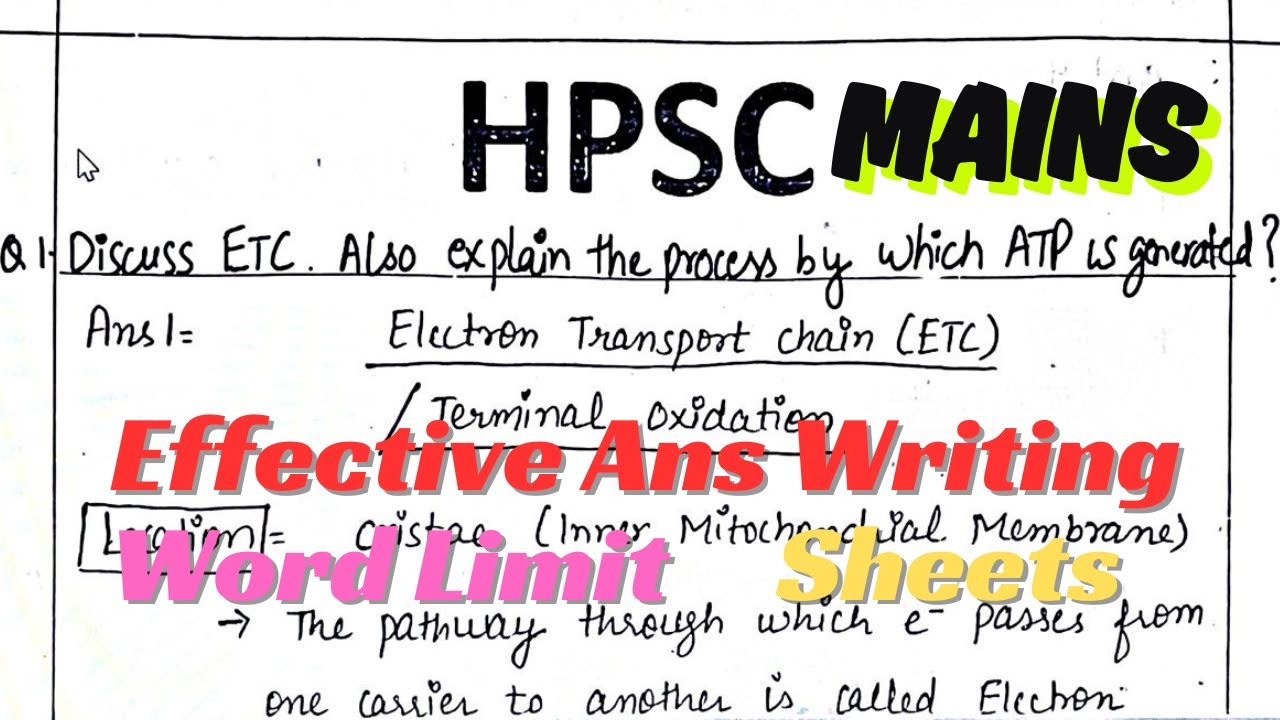 HPSC MAINS
Q1. Discuss ETC. Also explain the process by which ATP is generated?
Ans1=
Electron Transport chain (ETC)
/ Terminal oxidation
Effective Ans Writing
Location = cristae (Inner Mitochondrial Membrane)
Word Limit Sheets
→ The pathway through which e⁻ passes from
one carrier to another is called Electron